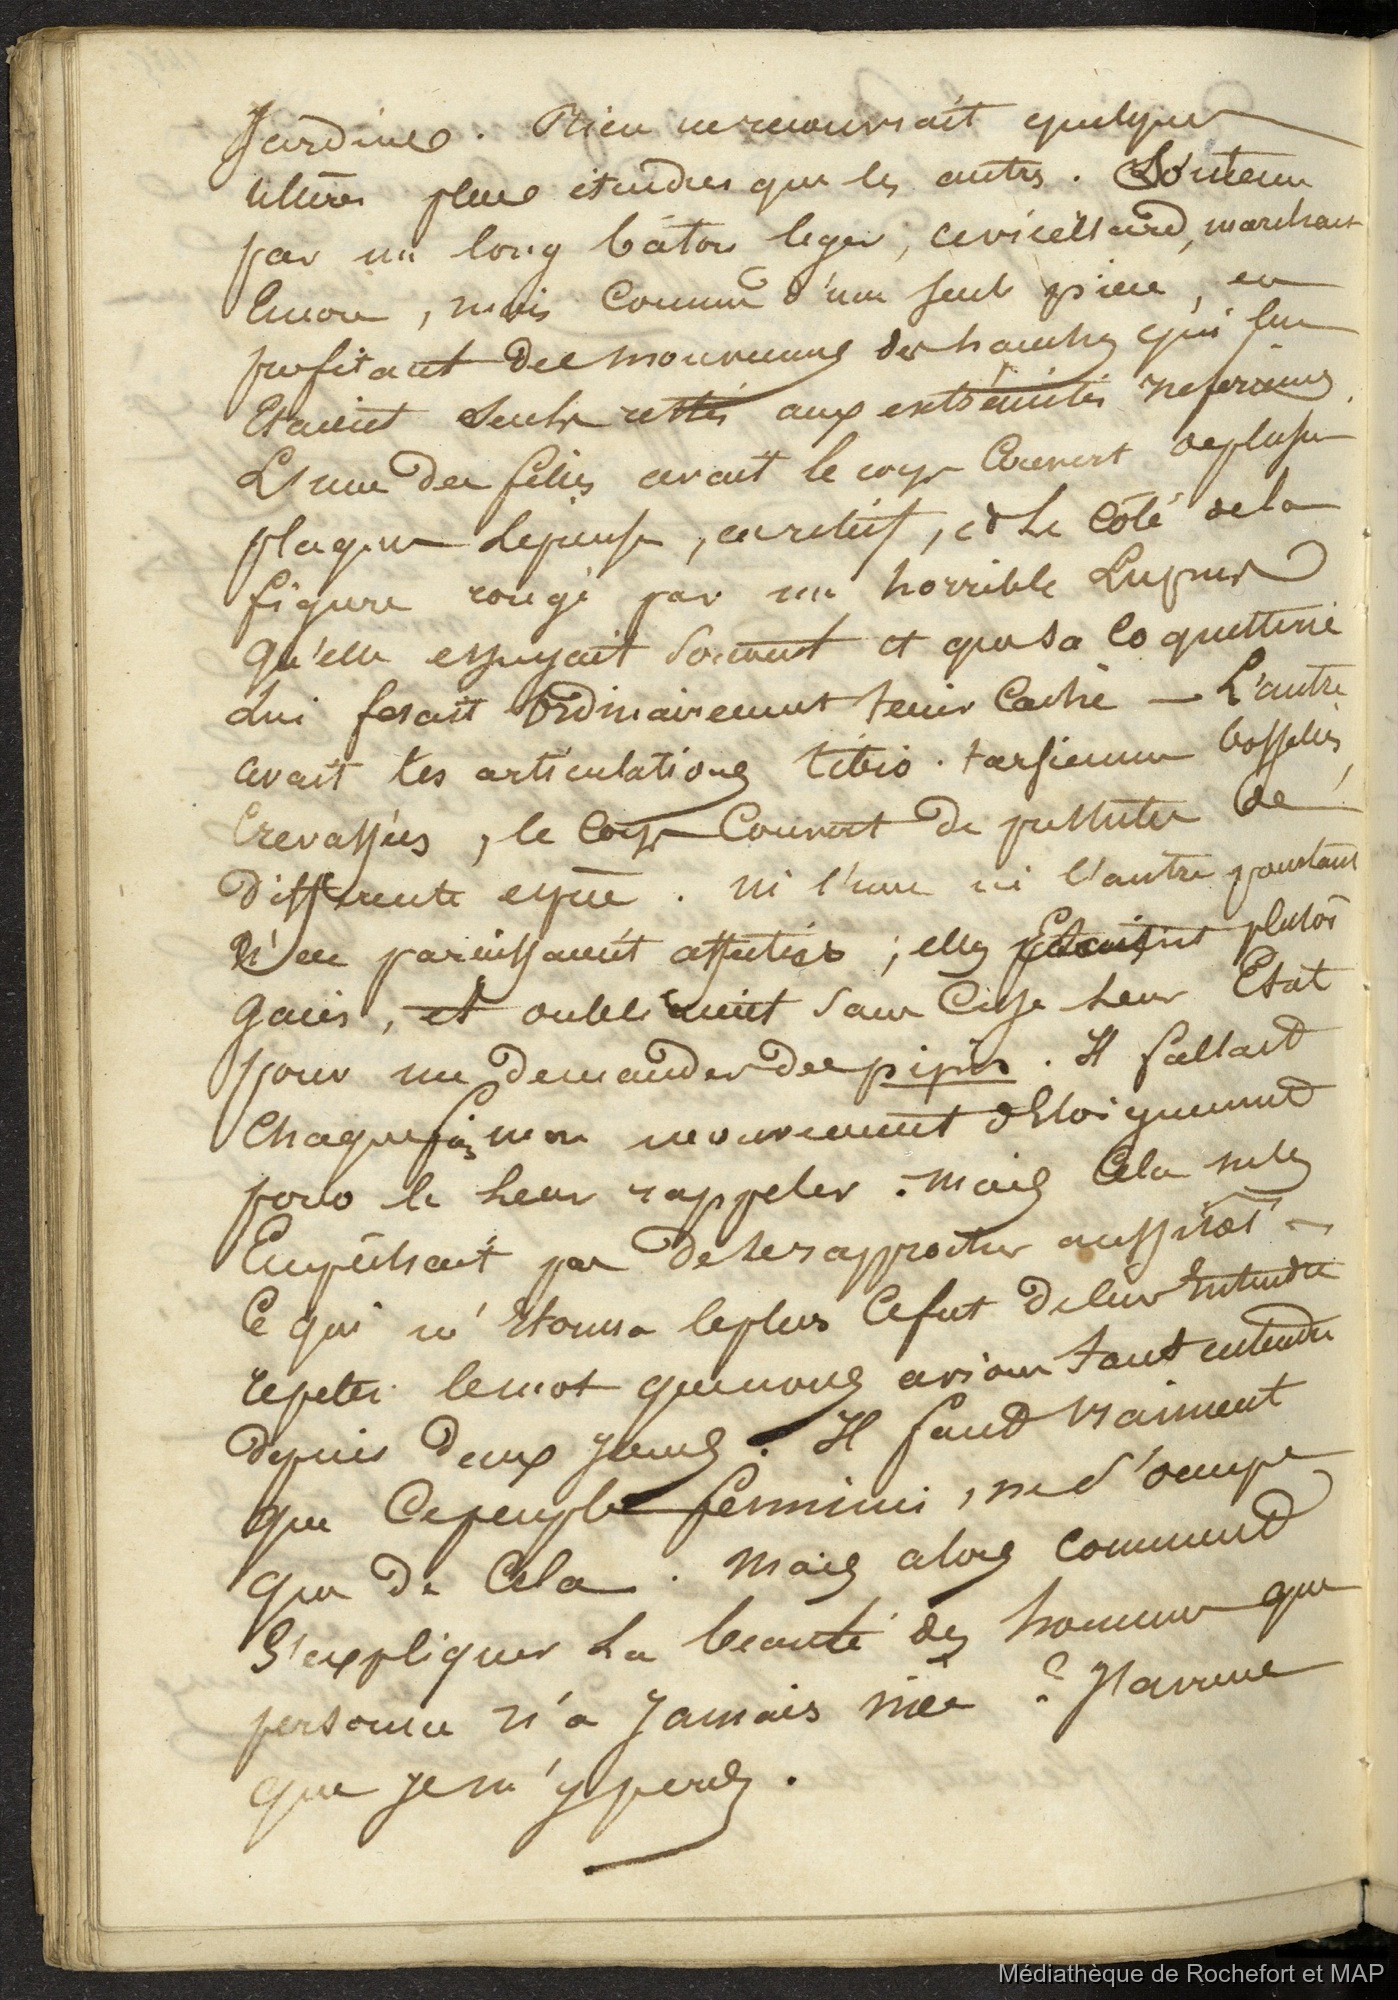 Jardines. Rien ne recouvrait quelques
ulcères plus étendus que les autres. Soutenu
par un long bâton leger, ce vieillard, marchait
Encore, mais comme d'une seule piece, en
profitant des mouvements des hanches qui lui
Etaient seuls restés aux extrémités inferieures.
L'une des filles avait le corps couvert de plusieurs
plaques lepreuses, en relief, et le côté de la
figure rongé par un horrible Lupus
qu'elle essuyait souvent et que sa coquetterie
lui fesait ordinairement tenir caché — L'autre
avait les articulations tibio-tarsiennes bosselées,
Crevassées, le corps couvert de pustules de
differente espèce. Ni l'une ni l'autre pourtant
n'en paraissaient affectées ; elles étaient plutôt
gaies, et oubliaient sans cesse leur Etat
pour me demander des pipes. Il fallait
chaque fois mon mouvement d'Eloignement
pour le leur rappeler. Mais cela ne les
Empêchait pas de se rapprocher aussitôt —
Ce qui m'étonna le plus ce fut de leur Entendre
repeter le mot que nous avions tant entendu
depuis deux jours. Il faut vraiment
que ce peuple feminin, ne s'occupe
que de cela. Mais alors comment
S'expliquer la beauté des hommes que
personne n'a jamais niée ? J'avoue
que je m'y perds.
Médiathèque de Rochefort et MAP